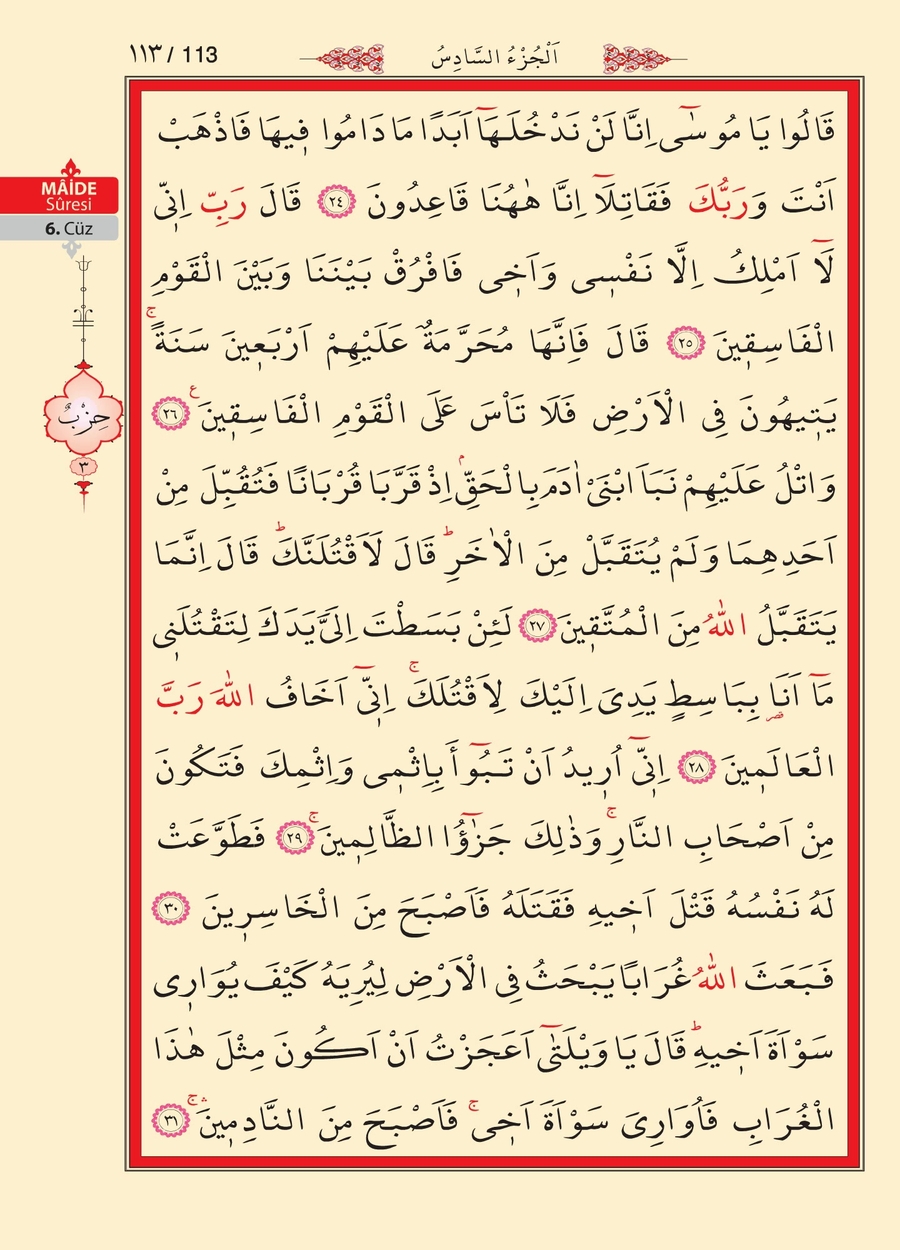 ١١٣ / 113
اَلْجُزْءُ السَّادِسُ
MÂİDE
Sûresi
6. Cüz
حِزْبٌ
٣
قَالُوا يَا مُوسٰٓى اِنَّا لَنْ نَدْخُلَهَٓا اَبَدًا مَا دَامُوا فٖيهَا فَاذْهَبْ
اَنْتَ وَرَبُّكَ فَقَاتِلَٓا اِنَّا هٰهُنَا قَاعِدُونَ ﴿٢٤﴾ قَالَ رَبِّ اِنّٖى
لَٓا اَمْلِكُ اِلَّا نَفْسٖى وَاَخٖى فَافْرُقْ بَيْنَنَا وَبَيْنَ الْقَوْمِ
الْفَاسِقٖينَ ﴿٢٥﴾ قَالَ فَاِنَّهَا مُحَرَّمَةٌ عَلَيْهِمْ اَرْبَعٖينَ سَنَةًۚ
يَتٖيهُونَ فِى الْاَرْضِ فَلَا تَاْسَ عَلَى الْقَوْمِ الْفَاسِقٖينَ ع ﴿٢٦﴾
وَاتْلُ عَلَيْهِمْ نَبَاَ ابْنَىْ اٰدَمَ بِالْحَقِّۢ اِذْ قَرَّبَا قُرْبَانًا فَتُقُبِّلَ مِنْ
اَحَدِهِمَا وَلَمْ يُتَقَبَّلْ مِنَ الْاٰخَرِؕ قَالَ لَاَقْتُلَنَّكَؕ قَالَ اِنَّمَا
يَتَقَبَّلُ اللّٰهُ مِنَ الْمُتَّقٖينَ ﴿٢٧﴾ لَئِنْ بَسَطْتَ اِلَىَّ يَدَكَ لِتَقْتُلَنٖى
مَٓا اَنَا۬ بِبَاسِطٍ يَدِىَ اِلَيْكَ لِاَقْتُلَكَۚ اِنّٖٓى اَخَافُ اللّٰهَ رَبَّ
الْعَالَمٖينَ ﴿٢٨﴾ اِنّٖٓى اُرٖيدُ اَنْ تَبُٓوأَ بِاِثْمٖى وَاِثْمِكَ فَتَكُونَ
مِنْ اَصْحَابِ النَّارِۚ وَذٰلِكَ جَزٰٓؤُا الظَّالِمٖينَۚ ﴿٢٩﴾ فَطَوَّعَتْ
لَهُ نَفْسُهُ قَتْلَ اَخٖيهِ فَقَتَلَهُ فَاَصْبَحَ مِنَ الْخَاسِرٖينَ ﴿٣٠﴾
فَبَعَثَ اللّٰهُ غُرَابًا يَبْحَثُ فِى الْاَرْضِ لِيُرِيَهُ كَيْفَ يُوَارٖى
سَوْاَةَ اَخٖيهِؕ قَالَ يَا وَيْلَتٰٓى اَعَجَزْتُ اَنْ اَكُونَ مِثْلَ هٰذَا
الْغُرَابِ فَاُوَارِىَ سَوْاَةَ اَخٖىۚ فَاَصْبَحَ مِنَ النَّادِمٖينَۚۛ ﴿٣١﴾